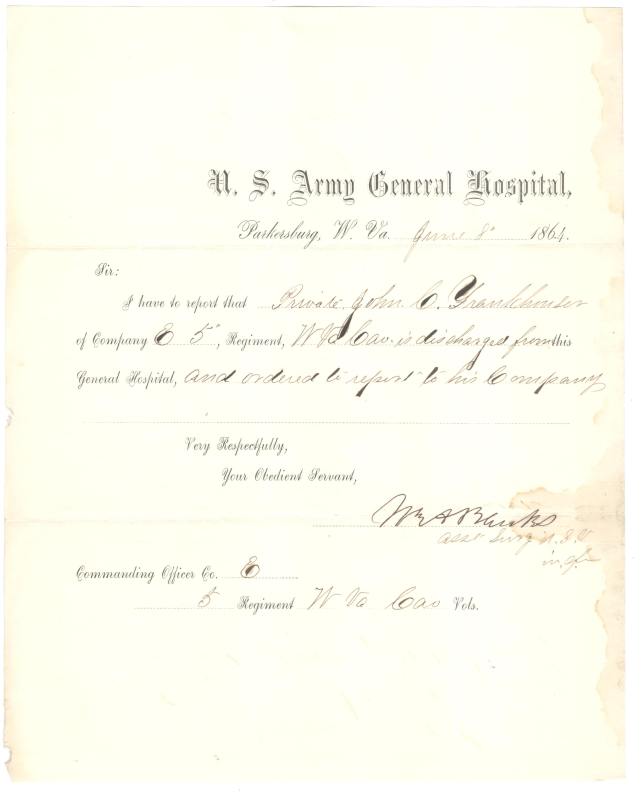 U. S. Army General Hospital,
Parkersburg, W. Va. June 8" 1864.
Sir:
I have to report that Private John C. Frankhouser
of Company E 5", Regiment, W Va Cav. is discharged from this
General Hospital, and ordered to report to his Company
Very Respectfully,
Your Obedient Servant,
Wm A Banks
Asst Surg U.S.V
in
Commanding Officer Co. E
5 Regiment W Va Cav Vols.